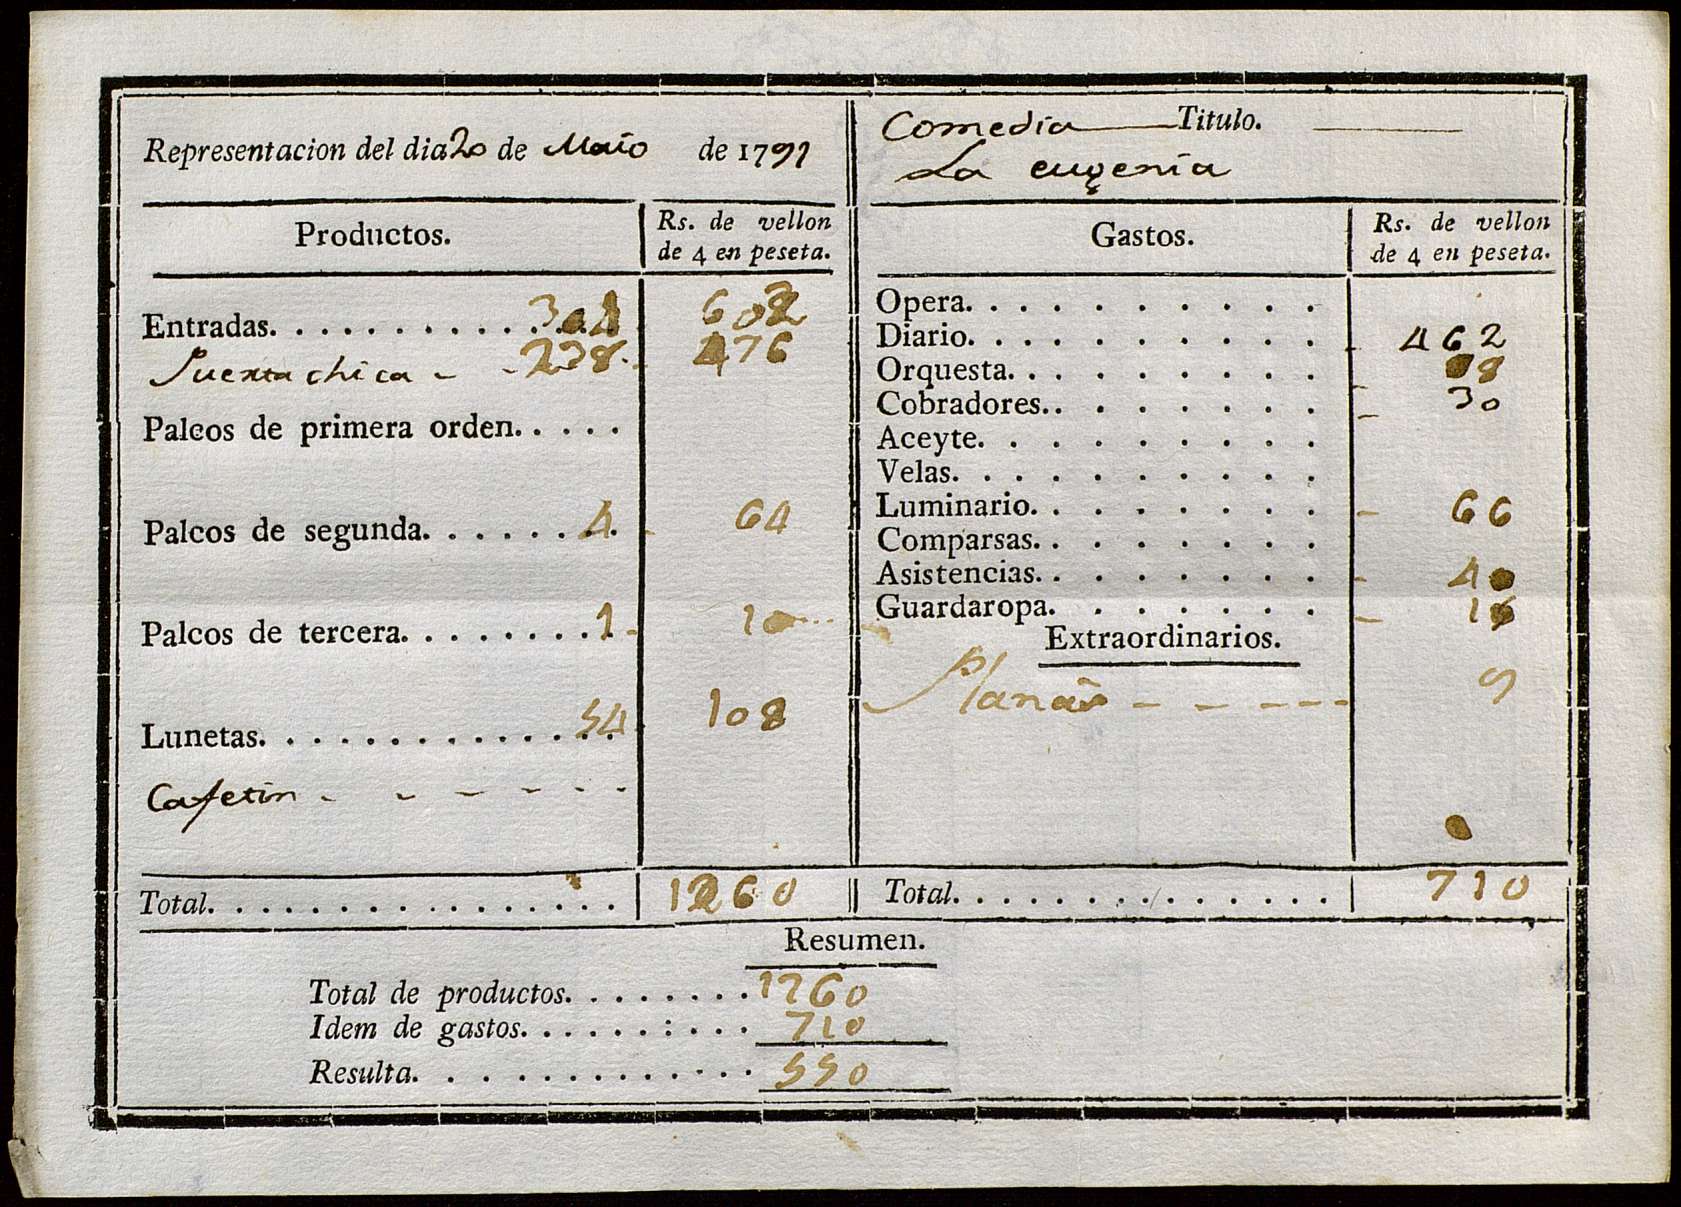 Representacion del dia 20 de Maio de 1791
Comedia — Titulo. —
La eugenia
Productos.
Rs. de vellon
de 4 en peseta.
Entradas. . . . . . . . . . . . . 301 602
Puerta chica - - 238. 476
Palcos de primera orden. . . . .
Palcos de segunda. . . . . . . . 4 - 64
Palcos de tercera. . . . . . . . . 1 - 10
Lunetas. . . . . . . . . . . . . . 54 108
Cafetin - - - - - - -
Total. . . . . . . . . . . . . . . . 1260
Gastos.
Rs. de vellon
de 4 en peseta.
Opera. . . . . . . . . .
Diario. . . . . . . . . . - 462
Orquesta. . . . . . . . . - 88
Cobradores. . . . . . . . - 30
Aceyte. . . . . . . . . .
Velas. . . . . . . . . . .
Luminario. . . . . . . . - 66
Comparsas. . . . . . . .
Asistencias. . . . . . . . - 40
Guardaropa. . . . . . . - 15
Extraordinarios.
- - - - - 9
Total. . . . . . . . . . . . . . 710
Resumen.
Total de productos. . . . . . . . 1260
Idem de gastos. . . . . . : . . . 710
Resulta. . . . . . . . . . . . . 550